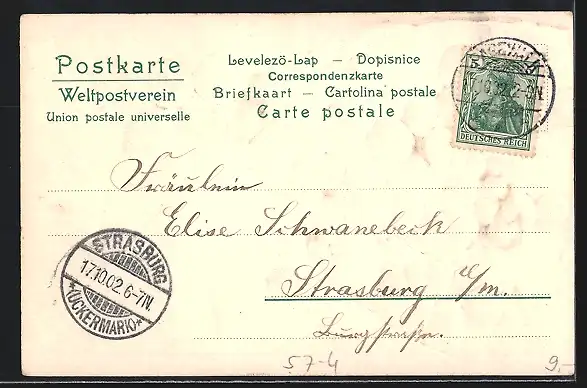 Postkarte
Weltpostverein
Union postale universelle
Levelezö-Lap — Dopisnice
Correspondenzkarte
Briefkaart — Cartolina postale
Carte postale
5
DEUTSCHES REICH
Fräulein
Elise Schwanebeck
Strasburg u/m.
Burgstraße.
STRASBURG
17.10.02.6-7N.
*(UCKERMARK)*
57-4
9.-